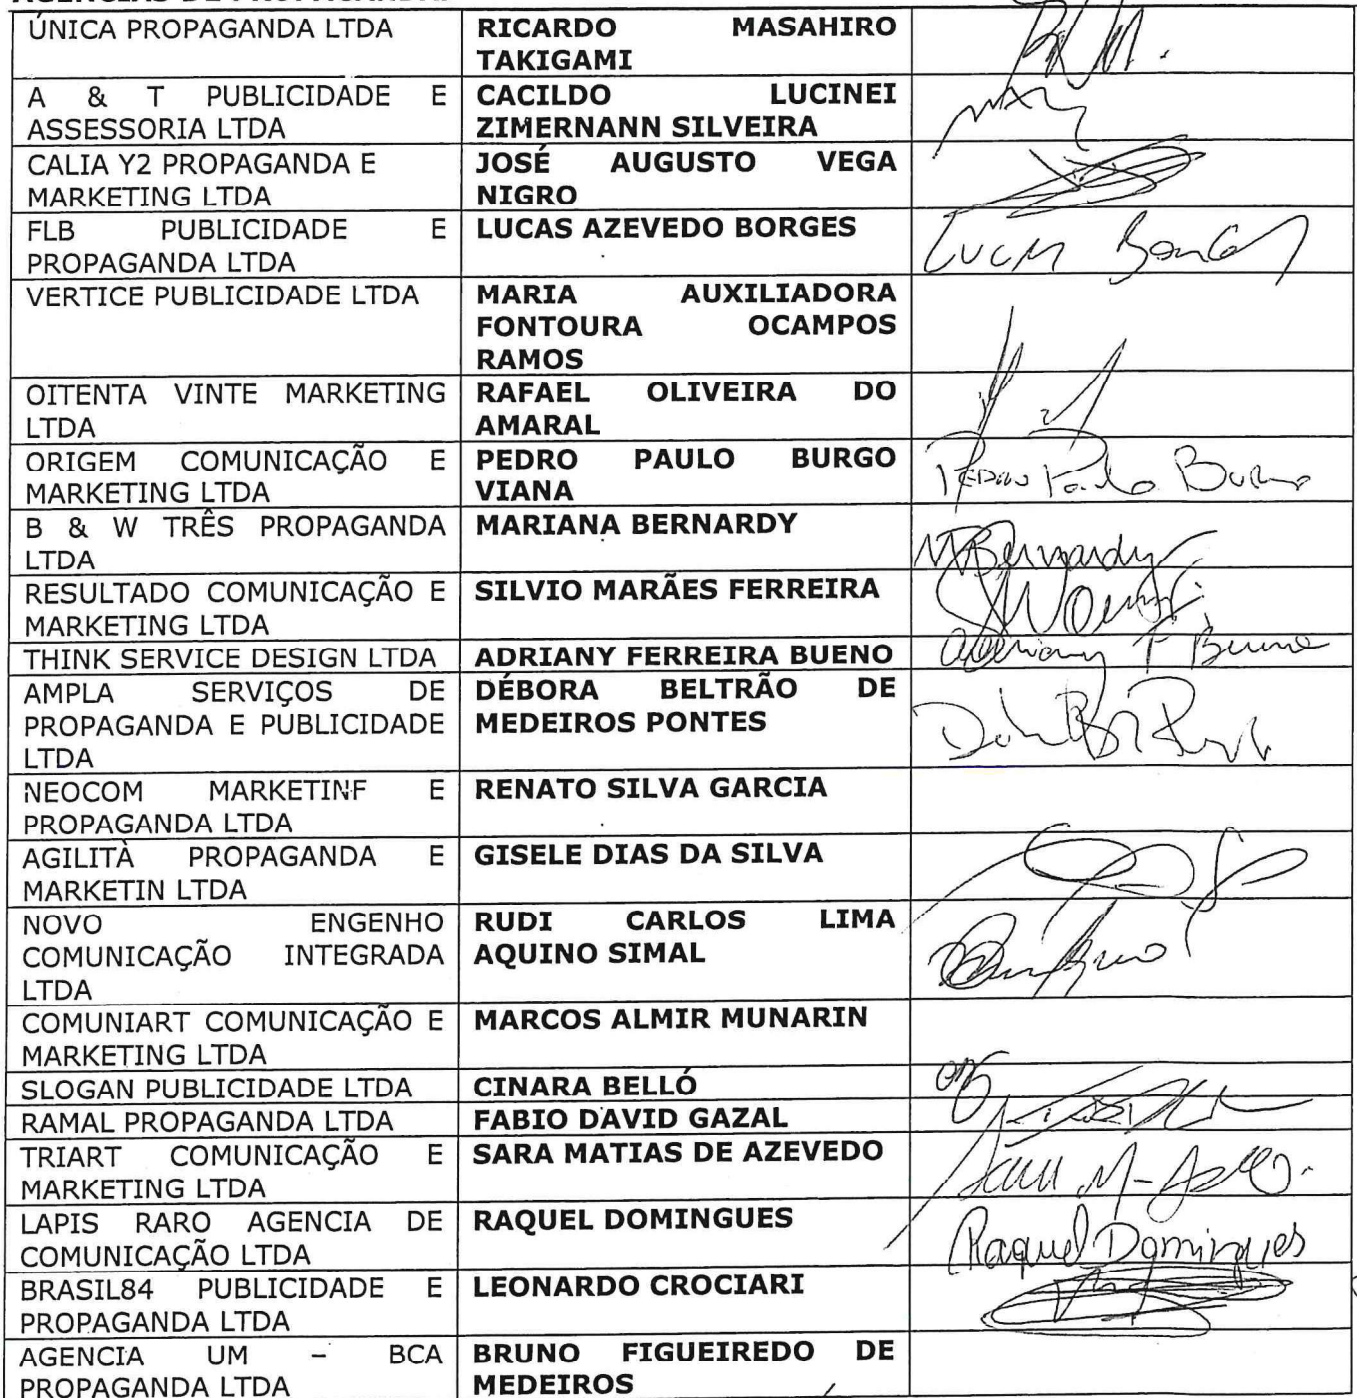 ÚNICA PROPAGANDA LTDA
RICARDO MASAHIRO
TAKIGAMI
A & T PUBLICIDADE E
ASSESSORIA LTDA
CACILDO LUCINEI
ZIMERNANN SILVEIRA
CALIA Y2 PROPAGANDA E
MARKETING LTDA
JOSÉ AUGUSTO VEGA
NIGRO
FLB PUBLICIDADE E
PROPAGANDA LTDA
LUCAS AZEVEDO BORGES
VERTICE PUBLICIDADE LTDA
MARIA AUXILIADORA
FONTOURA OCAMPOS
RAMOS
OITENTA VINTE MARKETING
LTDA
RAFAEL OLIVEIRA DO
AMARAL
ORIGEM COMUNICAÇÃO E
MARKETING LTDA
PEDRO PAULO BURGO
VIANA
B & W TRÊS PROPAGANDA
LTDA
MARIANA BERNARDY
MBernardy
RESULTADO COMUNICAÇÃO E
MARKETING LTDA
SILVIO MARÃES FERREIRA
THINK SERVICE DESIGN LTDA
ADRIANY FERREIRA BUENO
Adriany F Bueno
AMPLA SERVIÇOS DE
PROPAGANDA E PUBLICIDADE
LTDA
DÉBORA BELTRÃO DE
MEDEIROS PONTES
NEOCOM MARKETINF E
PROPAGANDA LTDA
RENATO SILVA GARCIA
AGILITÀ PROPAGANDA E
MARKETIN LTDA
GISELE DIAS DA SILVA
NOVO ENGENHO
COMUNICAÇÃO INTEGRADA
LTDA
RUDI CARLOS LIMA
AQUINO SIMAL
COMUNIART COMUNICAÇÃO E
MARKETING LTDA
MARCOS ALMIR MUNARIN
SLOGAN PUBLICIDADE LTDA
CINARA BELLÓ
RAMAL PROPAGANDA LTDA
FABIO DAVID GAZAL
TRIART COMUNICAÇÃO E
MARKETING LTDA
SARA MATIAS DE AZEVEDO
LAPIS RARO AGENCIA DE
COMUNICAÇÃO LTDA
RAQUEL DOMINGUES
Raquel Domingues
BRASIL84 PUBLICIDADE E
PROPAGANDA LTDA
LEONARDO CROCIARI
AGENCIA UM – BCA
PROPAGANDA LTDA
BRUNO FIGUEIREDO DE
MEDEIROS